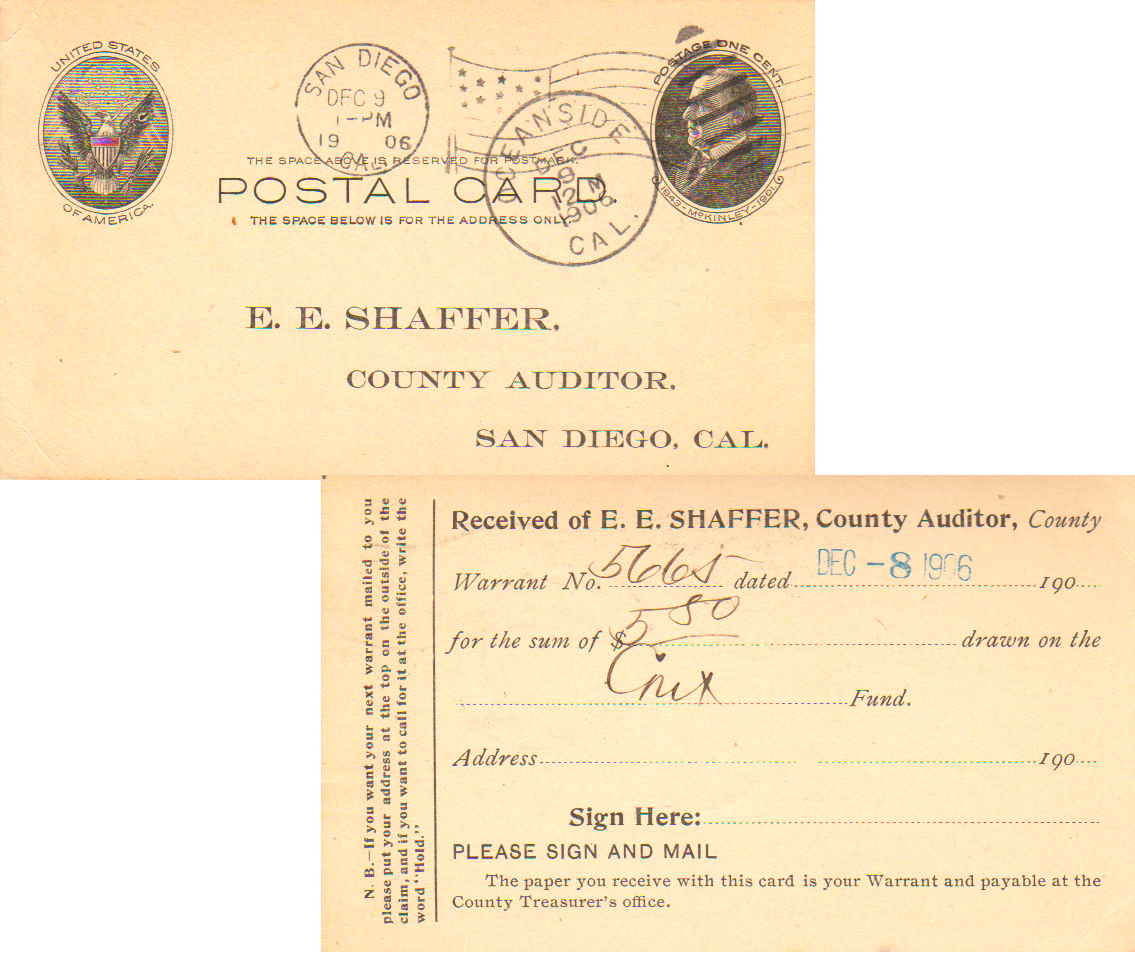 UNITED STATES
OF AMERICA.
SAN DIEGO
DEC 9
1-PM
19 06
CAL.
POSTAGE ONE CENT.
1843-McKINLEY-1901
OCEANSIDE
DEC
9
12 M
1906
CAL.
THE SPACE ABOVE IS RESERVED FOR POSTMARK.
POSTAL CARD.
THE SPACE BELOW IS FOR THE ADDRESS ONLY.
E. E. SHAFFER,
COUNTY AUDITOR,
SAN DIEGO, CAL.
N. B.—If you want your next warrant mailed to you
please put your address at the top on the outside of the
claim, and if you want to call for it at the office, write the
word "Hold."
Received of E. E. SHAFFER, County Auditor, County
Warrant No. 5665 dated DEC -8 1906 190
for the sum of $5 80 drawn on the
Fund.
Address 190
Sign Here:
PLEASE SIGN AND MAIL
The paper you receive with this card is your Warrant and payable at the
County Treasurer's office.